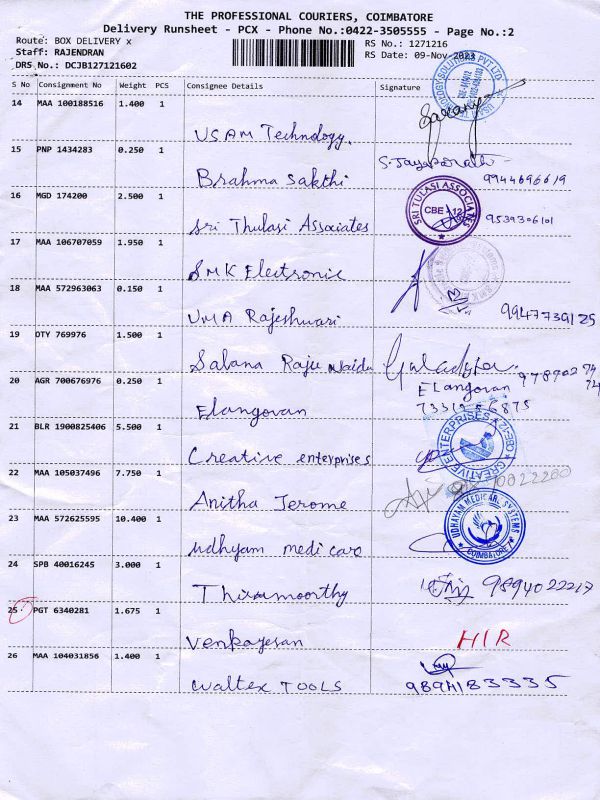 THE PROFESSIONAL COURIERS, COIMBATORE
Delivery Runsheet - PCX - Phone No.:0422-3505555 - Page No.:2
Route: BOX DELIVERY x
RS No.: 1271216
Staff: RAJENDRAN
RS Date: 09-Nov-2023
DRS No.: DCJB127121602
S No Consignment No Weight PCS Consignee Details Signature
14 MAA 100188516 1.400 1
USAM Technology.
15 PNP 1434283 0.250 1
Brahma Sakthi
9944696619
16 MGD 174200 2.500 1
SRI TULASI ASSOCIATES
CBE - 12
Sri Thulasi Associates 9539306101
17 MAA 106707059 1.950 1
SMK Electronic
18 MAA 572963063 0.150 1
UMA Rajeshwari 9947739125
19 OTY 769976 1.500 1
Sabana Raju Naidu
20 AGR 700676976 0.250 1
Elangovan
Elangovan
21 BLR 1900825406 5.500 1
CREATIVE ENTERPRISES
Creative enterprises
22 MAA 105037496 7.750 1
Anitha Jerome
23 MAA 572625595 10.400 1
UDHAYAM MEDICARE SYSTEMS
COIMBATORE
udhyam medi care
24 SPB 40016245 3.000 1
Thirumoorthy 9894022217
25 PGT 6340281 1.675 1
Venkayesan HIR
26 MAA 104031856 1.400 1
Waltex TOOLS